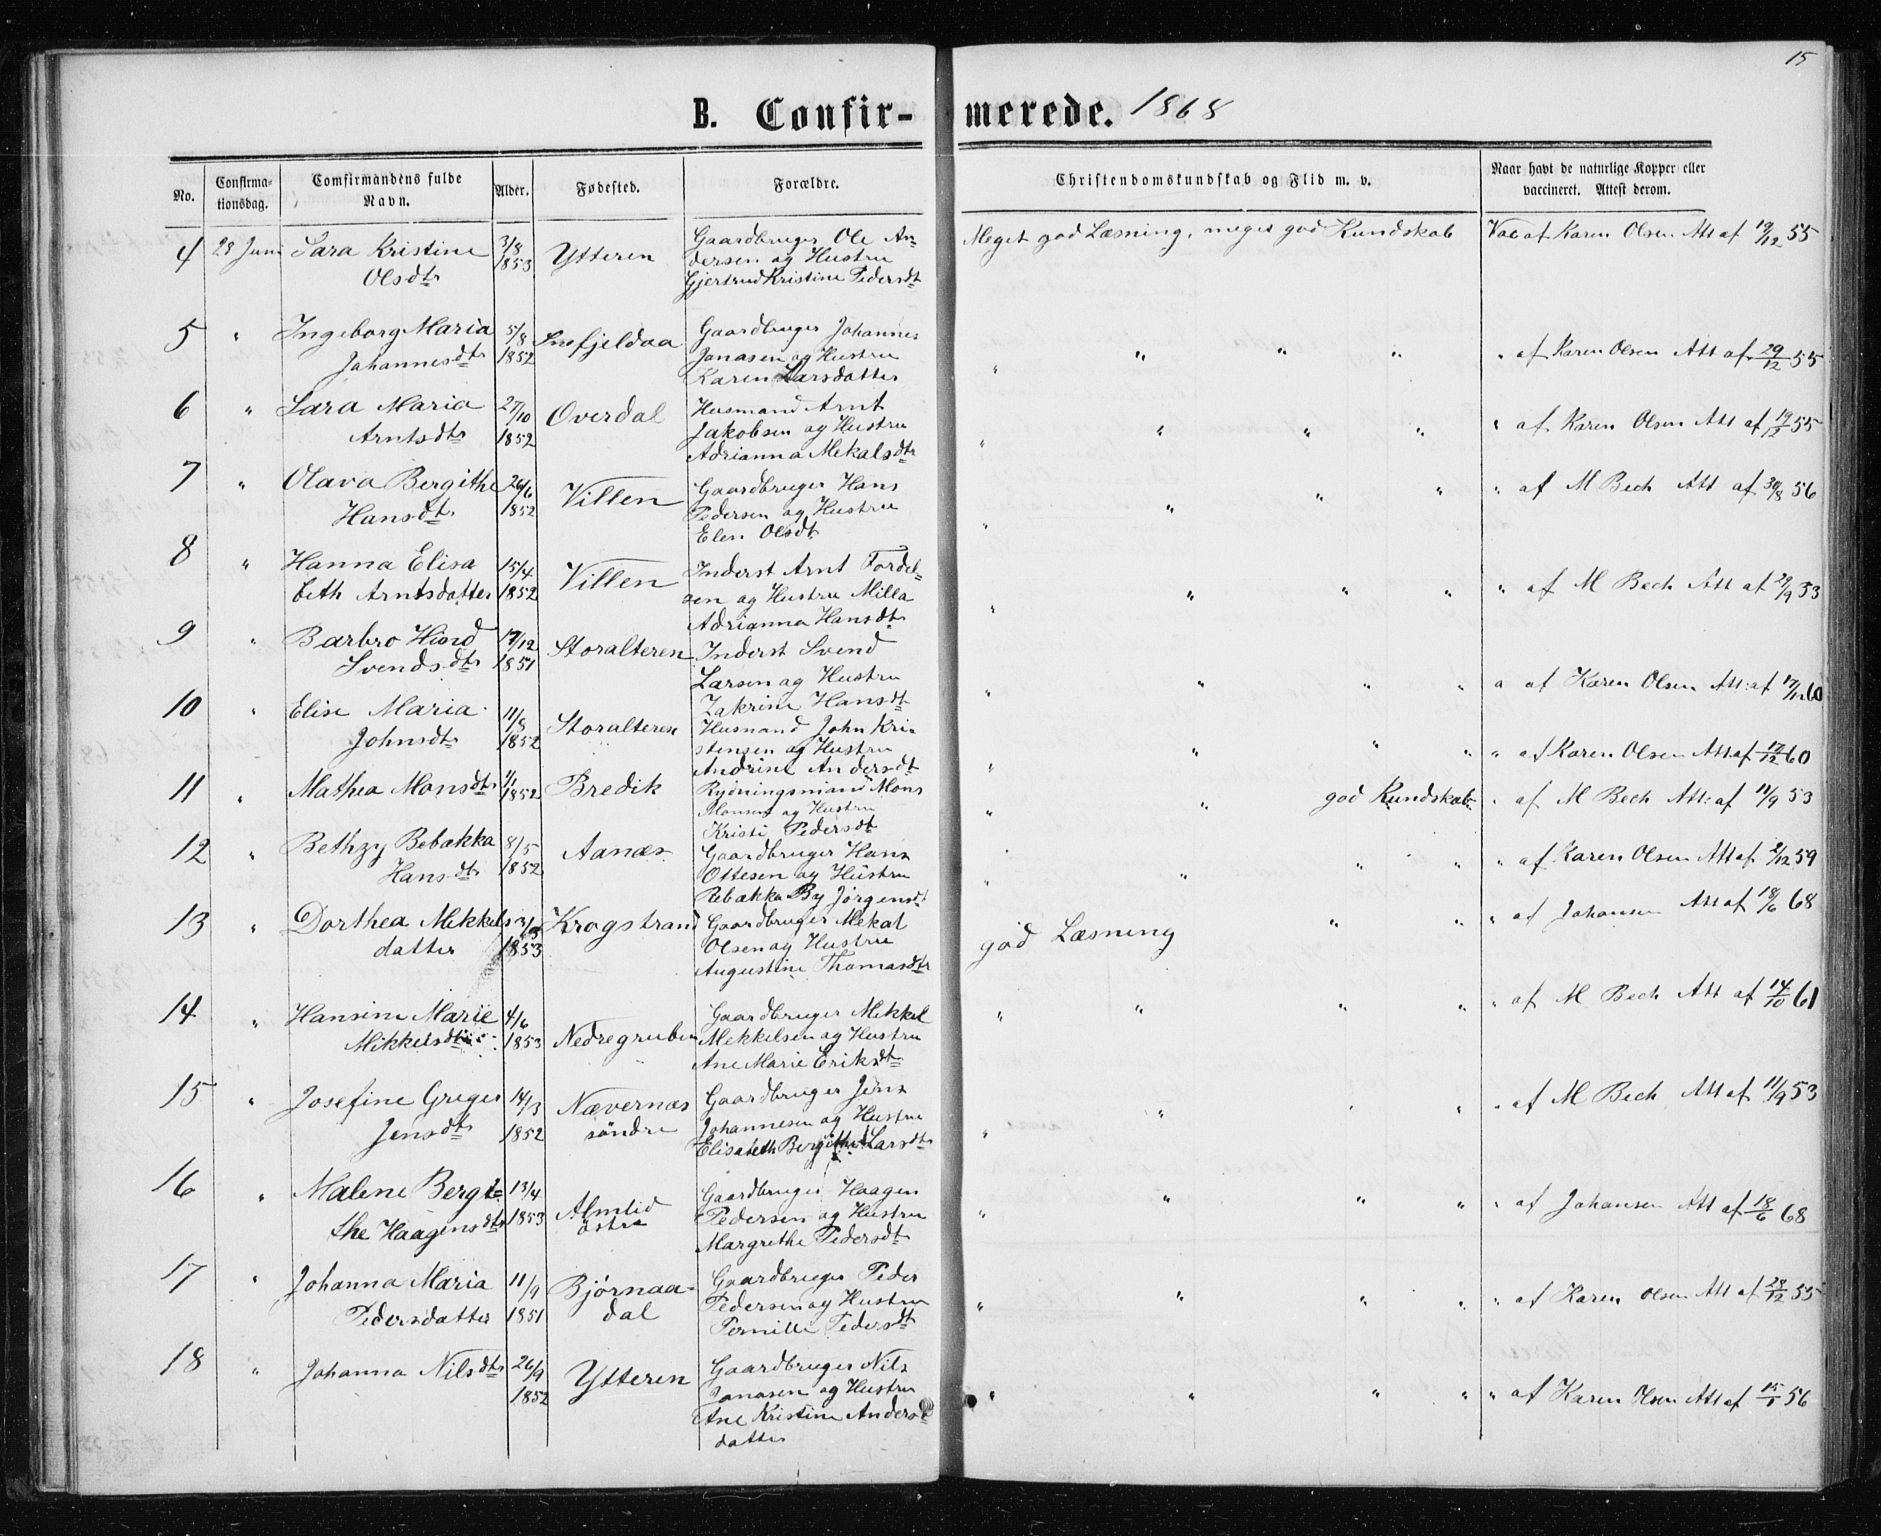 15
B. Confir- merede. 1868
No. Confirma-tionsdag. Comfirmandens fulde Navn. Alder. Fødested. Forældre. Christendomskundskab og Flid m. v. Naar havt de naturlige Kopper eller vaccineret. Attest derom.
4 28 Juni Sara Kristine 3/8 Ytteren Gaardbruger Ole An- Meget god Læsning, meget god Kundskab Vac af Karen Olsen Att af 19/12 55
Olsdtr 1853 dersen og Hustru
Gjertrud Kristine Pedersdt
5 " Ingeborg Maria 5/8 Snefjeldaa Gaardbruger Johannes
Johannesdtr 1852 Jonasen og Hustru " " " " " af Karen Olsen Att af 29/12 55
Karen Larsdatter
6 " Sara Maria 27/10 Overdal Husmand Arnt
Arntsdtr 1852 Jakobsen og Hustru " " " " " af Karen Olsen Att af 19/12 55
Adrianna Mekalsdtr
7 " Olava Bergithe 26/6 Villen Gaardbruger Hans
Hansdt 1852 Pedersen og Hustru " " " " " af M Bech Att af 30/8 56
Elen Olsdt
8 " Hanna Elisa 15/4 Villen Inderst Arnt Tordel-
beth Arntsdatter 1852 sen og Hustru Milla " " " " " af M Bech Att af 29/9 53
Adrianna Hansdt
9 " Barbro Hiord 17/12 Storalteren Inderst Svend
Svendsdtr 1851 Larsen og Hustru " " " " af Karen Olsen Att: af 17/12 60
Zakrine Hansdt
10 " Elise Maria 11/8 Storalteren Husmand John Kri-
Johnsdtr 1852 stensen og Hustru " " " " " af Karen Olsen Att af 17/12 60
Andrine Andersdt
11 " Mathea Monsdtr 1/1 1852 Bredik Rydningsmand Mons " " god Kundskab " af M Bech Att: af 11/9 53
Monsen og Hustru
Kristi Pedersdt
12 " Bethzy Bebækka 8/5 Aanæs Gaardbruger Hans
Hansdt 1852 Ottesen og Hustru " " " " " af Karen Olsen Att af 2/12 59
Rebækka By Jørgensdt
13 " Dorthea Mikkels Krogstrand Gaardbruger Mekal " " " af Johansen Att af 18/6 68
datter 1853 Olsen og Hustru god Læsning
Augustine Thomasdtr
14 " Hansine Marie 4/6 Nedregruben Gaardbruger Mikkel " " " " " af M Bech Att af 14/10 61
Mikkelsdtr 1853 Mekkelsen og Hustru
Ane Marie Eriksdt
15 " Josefine Greger 14/3 Nævernæs Gaardbruger Jens
Jensdt 1852 söndre Johannesen og Hustru " " " " " af M Bech Att af 11/9 53
Elisabeth Bergithe Larsdt
16 " Malene Bergi- 13/4 Almlid Gaardbruger Haagen
the Haagensdtr 1853 östre Pedersen og Hustru " " " " " af Johansen Att af 18/6 68
Margrethe Pedersdt
17 " Johanna Maria 11/9 Bjørnaa- Gaardbruger Peder
Pedersdatter 1851 dal Pedersen og Hustru " " " " " af Karen Olsen Att af 28/12 55
Pernille Pedersdt
18 " Johanna Nilsdtr 26/9 Ytteren Gaardbruger Nils
1852 Jonasen og Hustru " " " " " af Karen Olsen Att af 15/1 56
Ane Kristine Anders
datter